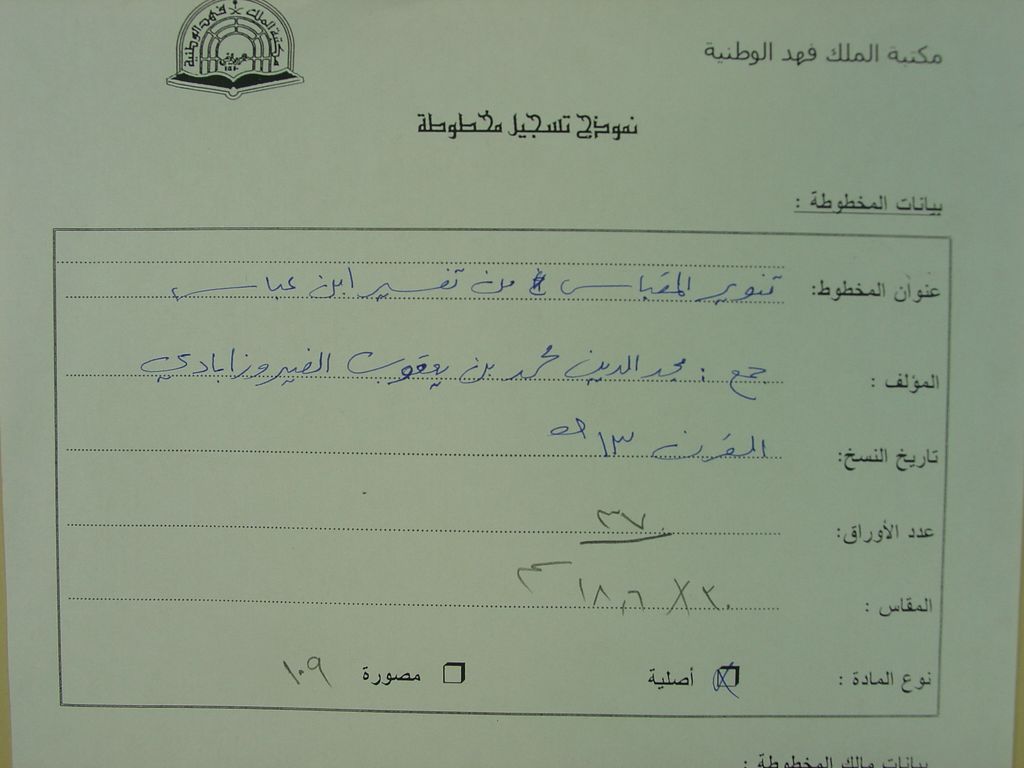 مكتبة الملك فهد الوطنية
مكتبة الملك فهد الوطنية
نموذج تسجيل مخطوطة
بيانات المخطوطة :
عنوان المخطوط: تنوير المقباس من تفسير ابن عباس
المؤلف : جمع : مجد الدين محمد بن يعقوب الفيروزابادي
تاريخ النسخ: القرن ١٣ هـ
عدد الأوراق: ٣٧٠
المقاس : ٣٠ X ١٨,٦ سم
نوع المادة : أصلية مصورة ١٠٩
بيانات مالك المخطوطة :